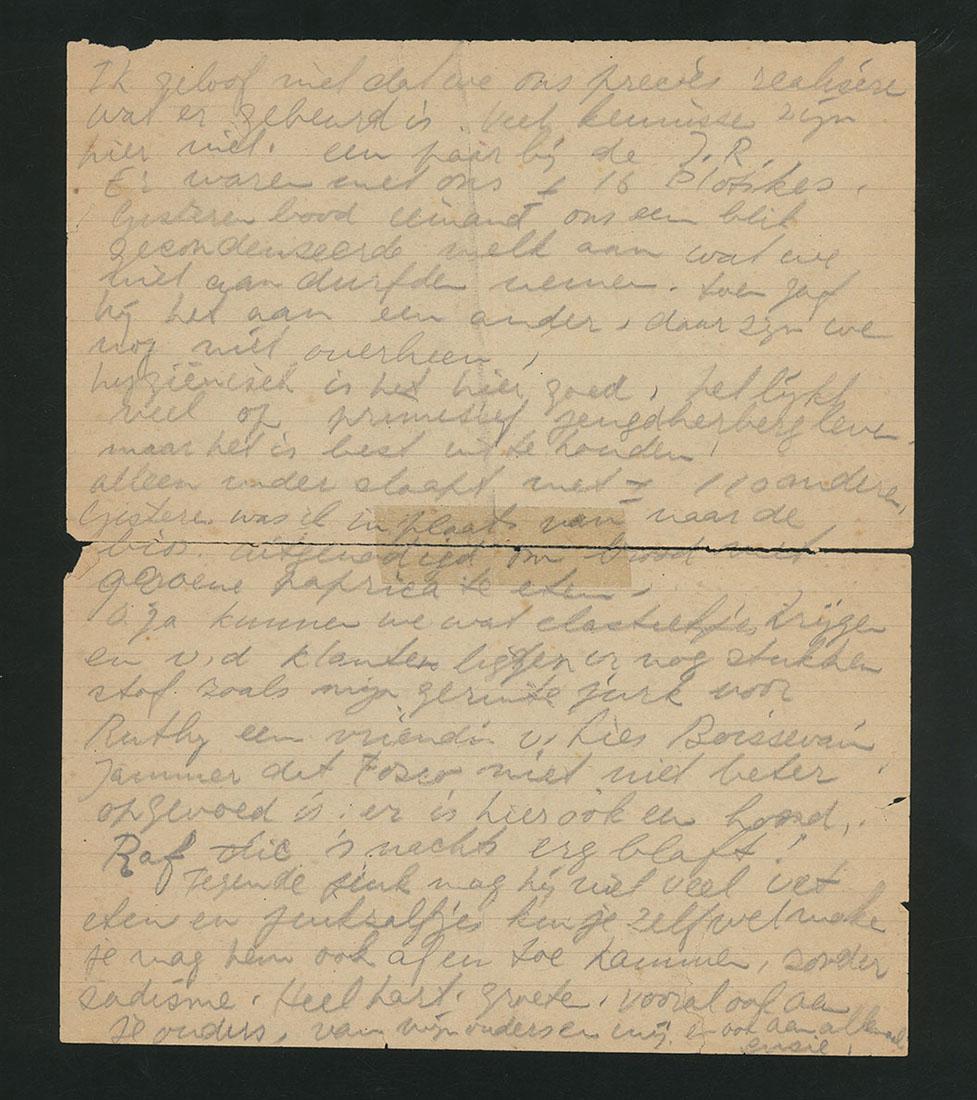 Ik geloof niet dat we ons precies realisere
wat er gebeurd is. Veel kennisse zijn
hier niet. een paar bij de J.R.
Er waren met ons ± 16
Gisteren bood iemand ons een blik
gecondenseerde melk aan wat we
niet aandurfden nemen. toen gaf
hij het aan een ander, daar zijn we
nog niet overheen,
hygiënisch is het hier goed, het lijkt
veel op primitief jeugdherberg leven
maar het is best uit te houden,
alleen ieder slaapt met ± 110 anderen,
Gisteren was ik in plaats van naar de
bios. uitgenodigd om brood met
groene paprica te eten.
O ja kunnen we wat elastiekjes krijgen
en v.d klanten liggen er nog stukken
stof zoals mijn geruite jurk voor
Ruthy een vriendin v. Lies Boissevain
Jammer dat Fosco niet beter
opgevoed is. er is hier ook een hond,
Raf die 's nachts erg blaft!
Tegen de jeuk mag hij niet veel vet
eten en jeukzalfjes kun je zelf wel make
je mag hem ook af en toe kammen, zonder
sadisme. Heel hart. groete, vooral ook aan
je ouders, van mijn ouders en mij. en ook aan allemaal